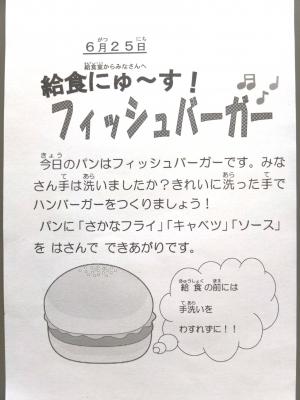 ６月２５日
給食室からみなさんへ
給食にゅ～す！
フィッシュバーガー
今日のパンはフィッシュバーガーです。みな
さん手は洗いましたか？きれいに洗った手で
ハンバーガーをつくりましょう！
パンに「さかなフライ」「キャベツ」「ソース」
を はさんで できあがりです。
給食の前には
手洗いを
わすれずに！！